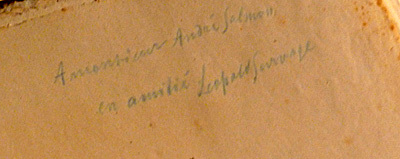 A monsieur André Salmon
en amitié Leopold Survage